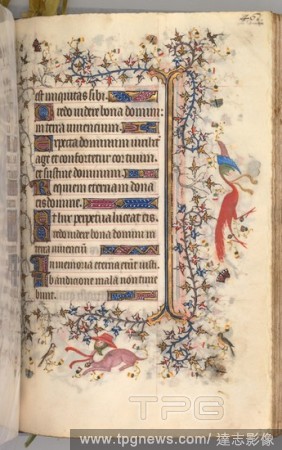 est iniquitas sibi.
Credo videre bona domini:
in terra viventium.
Expecta dominum viriliter
age et confortetur cor tuum:
et sustine dominum.
Requiem eternam dona
eis domine.
Et lux perpetua luceat eis.
Credo videre bona domini in
terra viventium
In memoria eterna erunt iusti
ab auditione mala non time
bunt.
TPG
www.tpgnews.com/達志影像